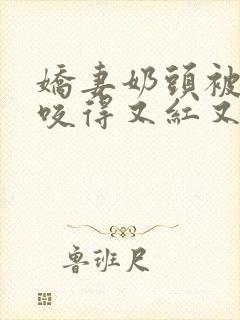 嬌妻奶頭被
咬得又紅又
魯班尺